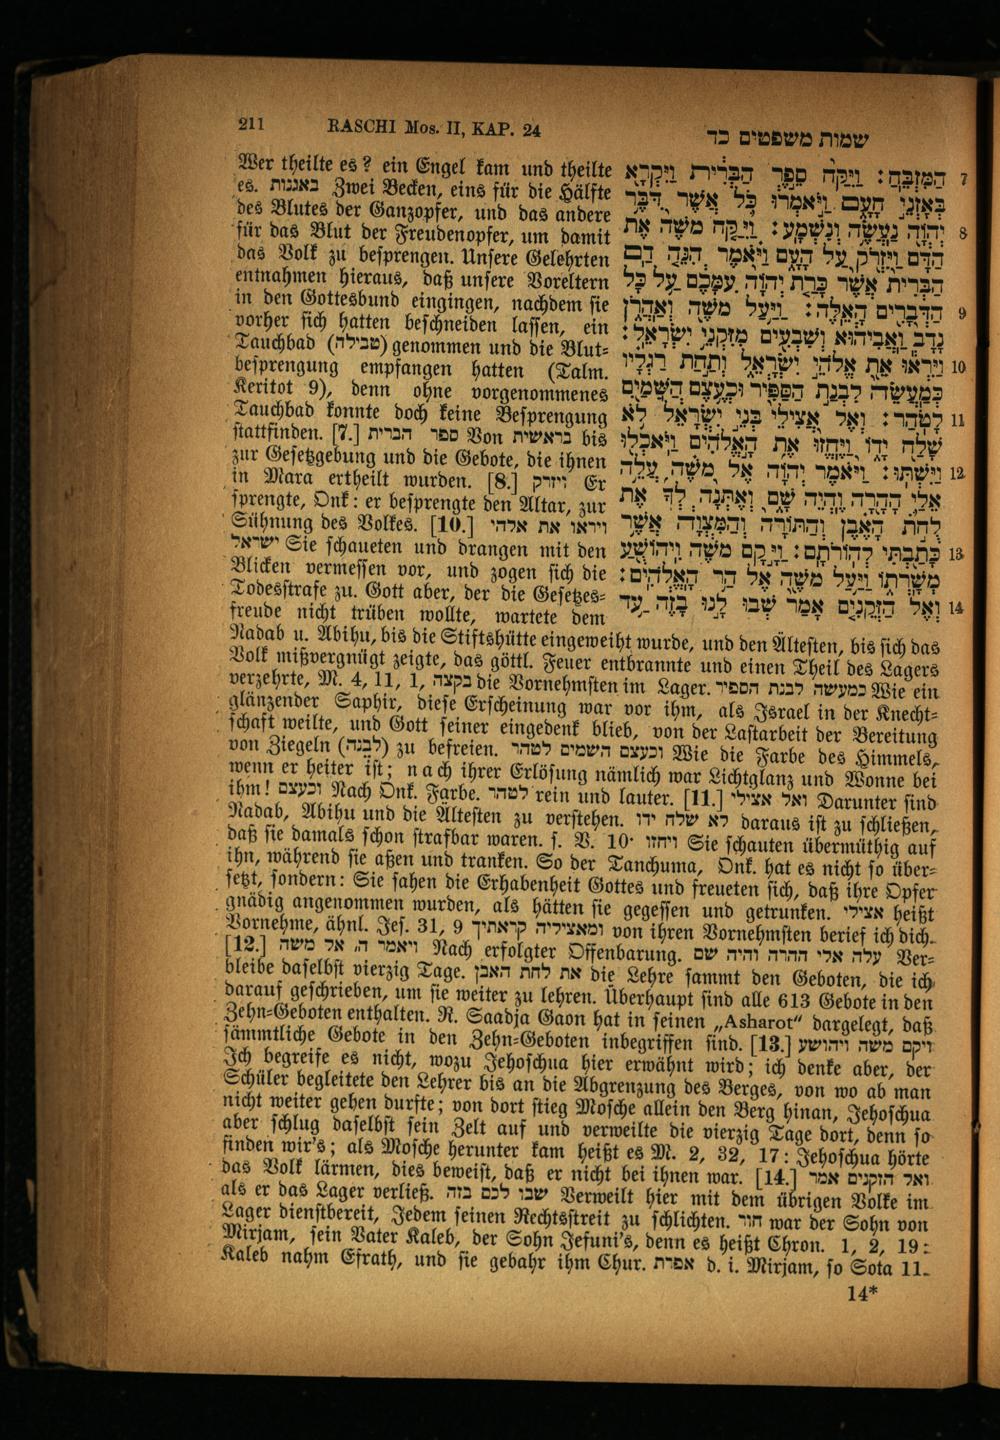 211 RASCHI Mos. II, KAP. 24
שמות משפטים כד
Wer theilte es? ein Engel kam und theilte
es. באגנות Zwei Becken, eins für die Hälfte
des Blutes der Ganzopfer, und das andere
für das Blut der Freudenopfer, um damit
das Volk zu besprengen. Unsere Gelehrten
entnahmen hieraus, daß unsere Voreltern
in den Gottesbund eingingen, nachdem sie
vorher sich hatten beschneiden lassen, ein
Tauchbad (טבילה) genommen und die Blut=
besprengung empfangen hatten (Talm.
Keritot 9), denn ohne vorgenommenes
Tauchbad konnte doch keine Besprengung
stattfinden. [7.] ספר הברית Von בראשית bis
zur Gesetzgebung und die Gebote, die ihnen
in Mara ertheilt wurden. [8.] ויזרק Er
sprengte, Onk: er besprengte den Altar, zur
Sühnung des Volkes. [10.] ויראו את אלהי
ישראל Sie schaueten und drangen mit den
Blicken vermessen vor, und zogen sich die
Todesstrafe zu. Gott aber, der die Gesetzes=
freude nicht trüben wollte, wartete dem
הַמִּזְבֵּחַ׃ וַיִּקַּח סֵפֶר הַבְּרִית וַיִּקְרָא 7
בְּאָזְנֵי הָעָם וַיֹּאמְרוּ כֹּל אֲשֶׁר דִּבֶּר
יְהוָֹה נַעֲשֶׂה וְנִשְׁמָע׃ וַיִּקַּח מֹשֶׁה אֶת 8
הַדָּם וַיִּזְרֹק עַל הָעָם וַיֹּאמֶר הִנֵּה דַם
הַבְּרִית אֲשֶׁר כָּרַת יְהוָֹה עִמָּכֶם עַל כָּל
הַדְּבָרִים הָאֵלֶּה׃ וַיַּעַל מֹשֶׁה וְאַהֲרֹן 9
נָדָב וַאֲבִיהוּא וְשִׁבְעִים מִזִּקְנֵי יִשְׂרָאֵל׃
וַיִּרְאוּ אֵת אֱלֹהֵי יִשְׂרָאֵל וְתַחַת רַגְלָיו 10
כְּמַעֲשֵׂה לִבְנַת הַסַּפִּיר וּכְעֶצֶם הַשָּׁמַיִם
לָטֹהַר׃ וְאֶל אֲצִילֵי בְּנֵי יִשְׂרָאֵל לֹא 11
שָׁלַח יָדוֹ וַיֶּחֱזוּ אֶת הָאֱלֹהִים וַיֹּאכְלוּ
וַיִּשְׁתּוּ׃ וַיֹּאמֶר יְהוָֹה אֶל מֹשֶׁה עֲלֵה 12
אֵלַי הָהָרָה וֶהְיֵה שָׁם וְאֶתְּנָה לְךָ אֶת
לֻחֹת הָאֶבֶן וְהַתּוֹרָה וְהַמִּצְוָה אֲשֶׁר
כָּתַבְתִּי לְהוֹרֹתָם׃ וַיָּקָם מֹשֶׁה וִיהוֹשֻׁעַ 13
מְשָׁרְתוֹ וַיַּעַל מֹשֶׁה אֶל הַר הָאֱלֹהִים׃
וְאֶל הַזְּקֵנִים אָמַר שְׁבוּ לָנוּ בָזֶה עַד 14
Nadab u. Abihu, bis die Stiftshütte eingeweiht wurde, und den Ältesten, bis sich das
Volk mißvergnügt zeigte, das göttl. Feuer entbrannte und einen Theil des Lagers
verzehrte, M. 4, 11, 1, בקצה die Vornehmsten im Lager. כמעשה לבנת הספיר Wie ein
glänzender Saphir, diese Erscheinung war vor ihm, als Israel in der Knecht=
schaft weilte, und Gott seiner eingedenk blieb, von der Lastarbeit der Bereitung
von Ziegeln (לבנה) zu befreien. וכעצם השמים לטהר Wie die Farbe des Himmels,
wenn er heiter ist; nach ihrer Erlösung nämlich war Lichtglanz und Wonne bei
ihm! וכעצם Nach Onk. Farbe. לטהר rein und lauter. [11.] ואל אצילי Darunter sind
Nadab, Abihu und die Ältesten zu verstehen. לא שלח ידו daraus ist zu schließen,
daß sie damals schon strafbar waren. s. V. 10· ויחזו Sie schauten übermüthig auf
ihn, während sie aßen und tranken. So der Tanchuma, Onk. hat es nicht so über=
setzt, sondern: Sie sahen die Erhabenheit Gottes und freueten sich, daß ihre Opfer
gnädig angenommen wurden, als hätten sie gegessen und getrunken. אצילי heißt
Vornehme, ähnl. Jes. 31, 9 ומאציליה קראתיך von ihren Vornehmsten berief ich dich.
[12.] ויאמר ה' אל משה Nach erfolgter Offenbarung. עלה אלי ההרה והיה שם Ver=
bleibe daselbst vierzig Tage. את לחת האבן die Lehre sammt den Geboten, die ich
darauf geschrieben, um sie weiter zu lehren. Überhaupt sind alle 613 Gebote in den
Zehn=Geboten enthalten. R. Saadja Gaon hat in seinen „Asharot“ dargelegt, daß
sämmtliche Gebote in den Zehn=Geboten inbegriffen sind. [13.] ויקם משה ויהושע
Ich begreife es nicht, wozu Jehoschua hier erwähnt wird; ich denke aber, der
Schüler begleitete den Lehrer bis an die Abgrenzung des Berges, von wo ab man
nicht weiter gehen durfte; von dort stieg Mosche allein den Berg hinan, Jehoschua
aber schlug daselbst sein Zelt auf und verweilte die vierzig Tage dort, denn so
finden wir's; als Mosche herunter kam heißt es M. 2, 32, 17: Jehoschua hörte
das Volk lärmen, dies beweist, daß er nicht bei ihnen war. [14.] ואל הזקנים אמר
als er das Lager verließ. שבו לכם בזה Verweilt hier mit dem übrigen Volke im
Lager dienstbereit, Jedem seinen Rechtsstreit zu schlichten. חור war der Sohn von
Mirjam, sein Vater Kaleb, der Sohn Jefuni's, denn es heißt Chron. 1, 2, 19:
Kaleb nahm Efrath, und sie gebahr ihm Chur. אפרת d. i. Mirjam, so Sota 11.
14*